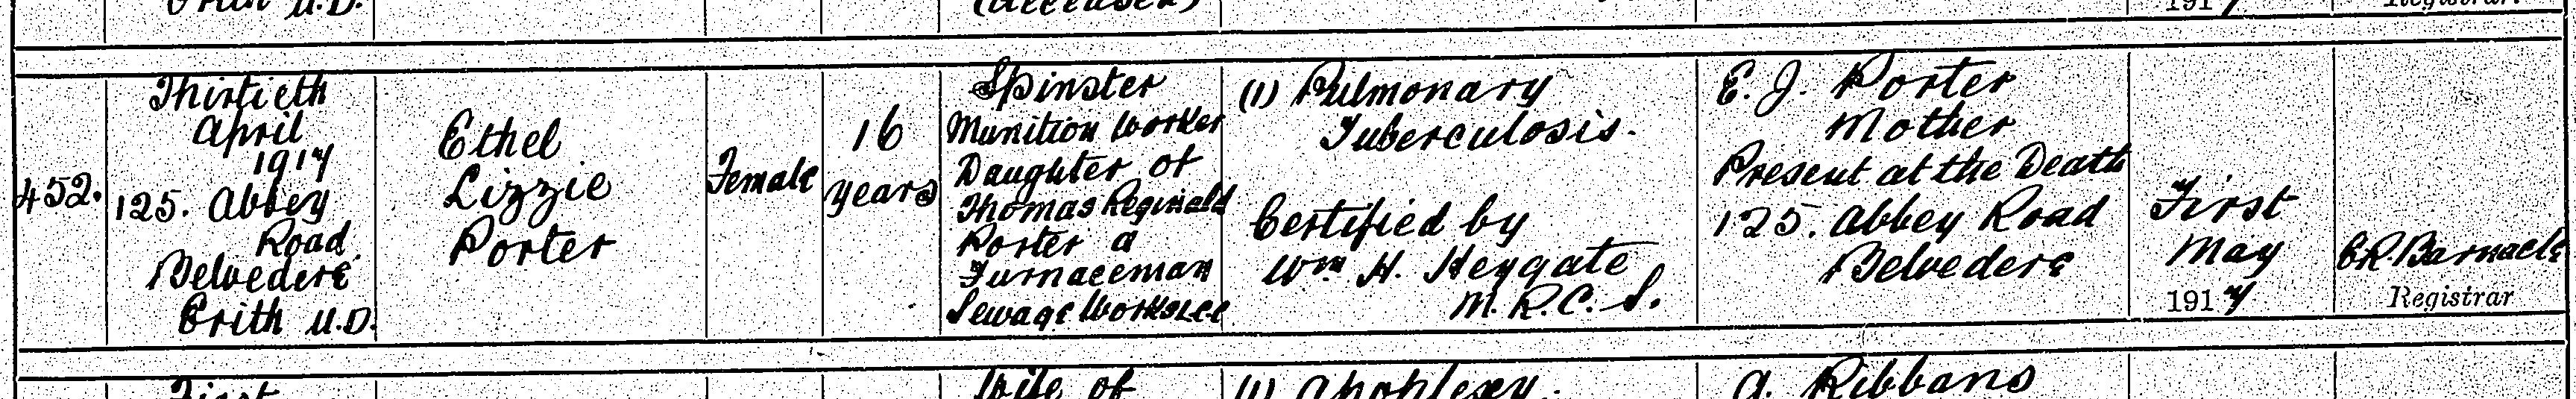 Erith U.D.
(deceased)
1917
Registrar.
452.
Thirtieth
April
1917
125. Abbey
Road
Belvedere
Erith U.D.
Ethel
Lizzie
Porter
Female
16
years
Spinster
Munition Worker
Daughter of
Thomas Reginald
Porter a
Furnaceman
Sewage Works LCC
(1) Pulmonary
Tuberculosis.
Certified by
Wm H. Heygate
M.R.C.S.
E. J. Porter
Mother
Present at the Death
125. Abbey Road
Belvedere
First
May
1917
C.R. Barnacle
Registrar
First
Wife of
(1) Apoplexy.
A. Ribbans